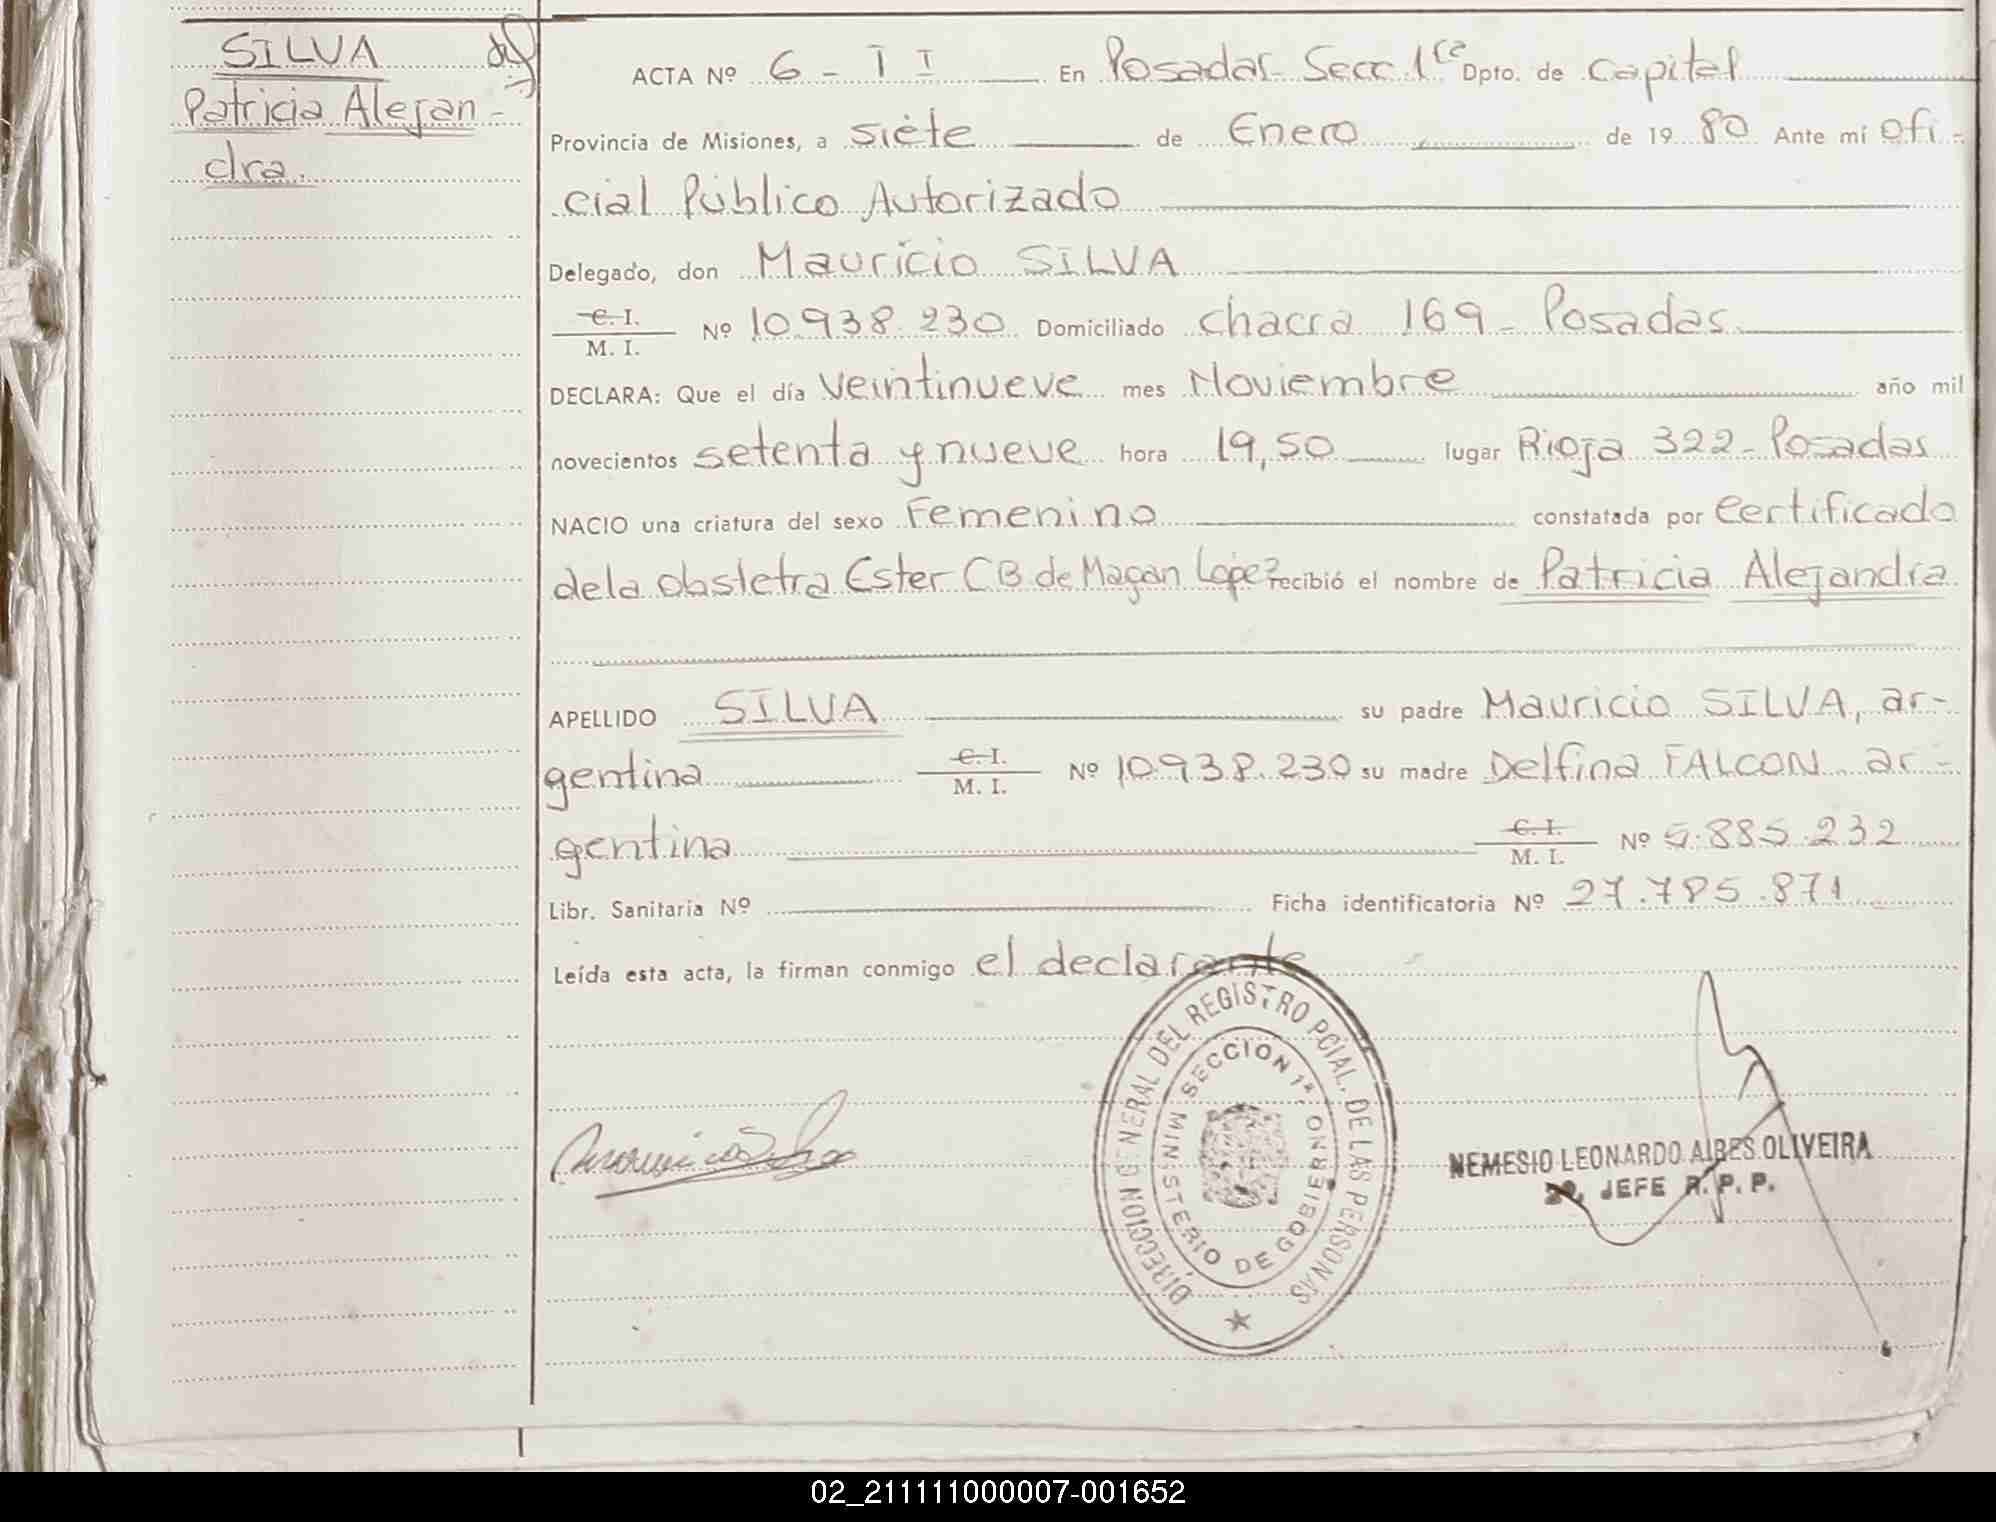 SILVA
Patricia Alejan-
dra.
ACTA Nº 6 - II En Posadas Secc 1ra Dpto. de Capital
Provincia de Misiones, a siete de Enero de 1980 Ante mí Ofi-
cial Público Autorizado
Delegado, don Mauricio SILVA
C. I.
M. I. Nº 10.938.230 Domiciliado Chacra 169 - Posadas
DECLARA: Que el día Veintinueve mes Noviembre año mil
novecientos setenta y nueve hora 19,50 lugar Rioja 322 - Posadas
NACIO una criatura del sexo Femenino constatada por Certificado
de la obstetra Ester CB de Magan Lopez recibió el nombre de Patricia Alejandra
APELLIDO SILVA su padre Mauricio SILVA, ar-
gentina C. I. M. I. Nº 10.938.230 su madre Delfina FALCON ar-
gentina C. I. M. I. Nº 5.885.232
Libr. Sanitaria Nº Ficha identificatoria Nº 27.785.871
Leída esta acta, la firman conmigo el declarante
DIRECCION GENERAL DEL REGISTRO PCIAL. DE LAS PERSONAS
SECCION 1ª.
MINISTERIO DE GOBIERNO
NEMESIO LEONARDO AIRES OLIVEIRA
2º. JEFE R. P. P.
02_211111000007-001652